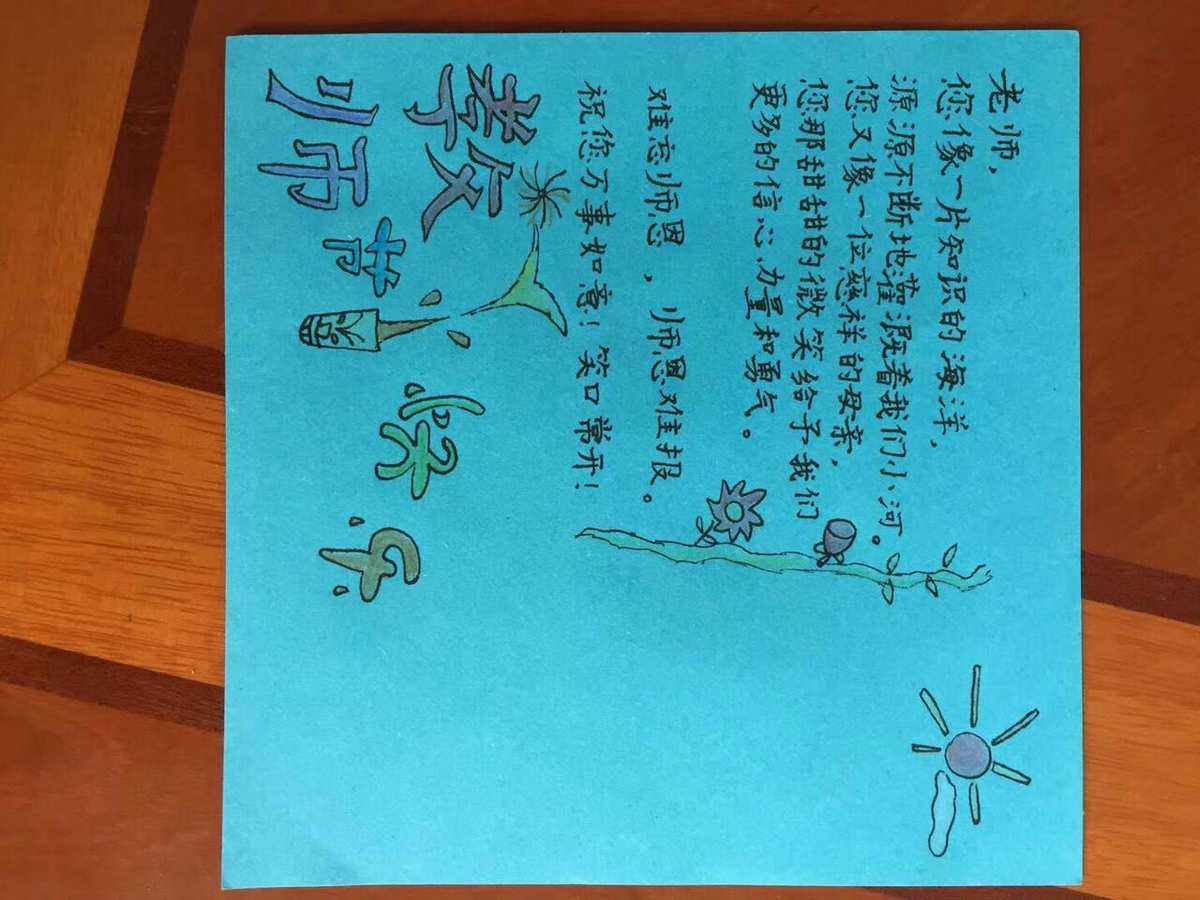 老师，
您像一片知识的海洋，
源源不断地灌溉着我们小河。
您又像一位慈祥的母亲，
您那甜甜的微笑给予我们
更多的信心、力量和勇气。
难忘师恩，师恩难报。
祝您万事如意！笑口常开！
教师节
快乐